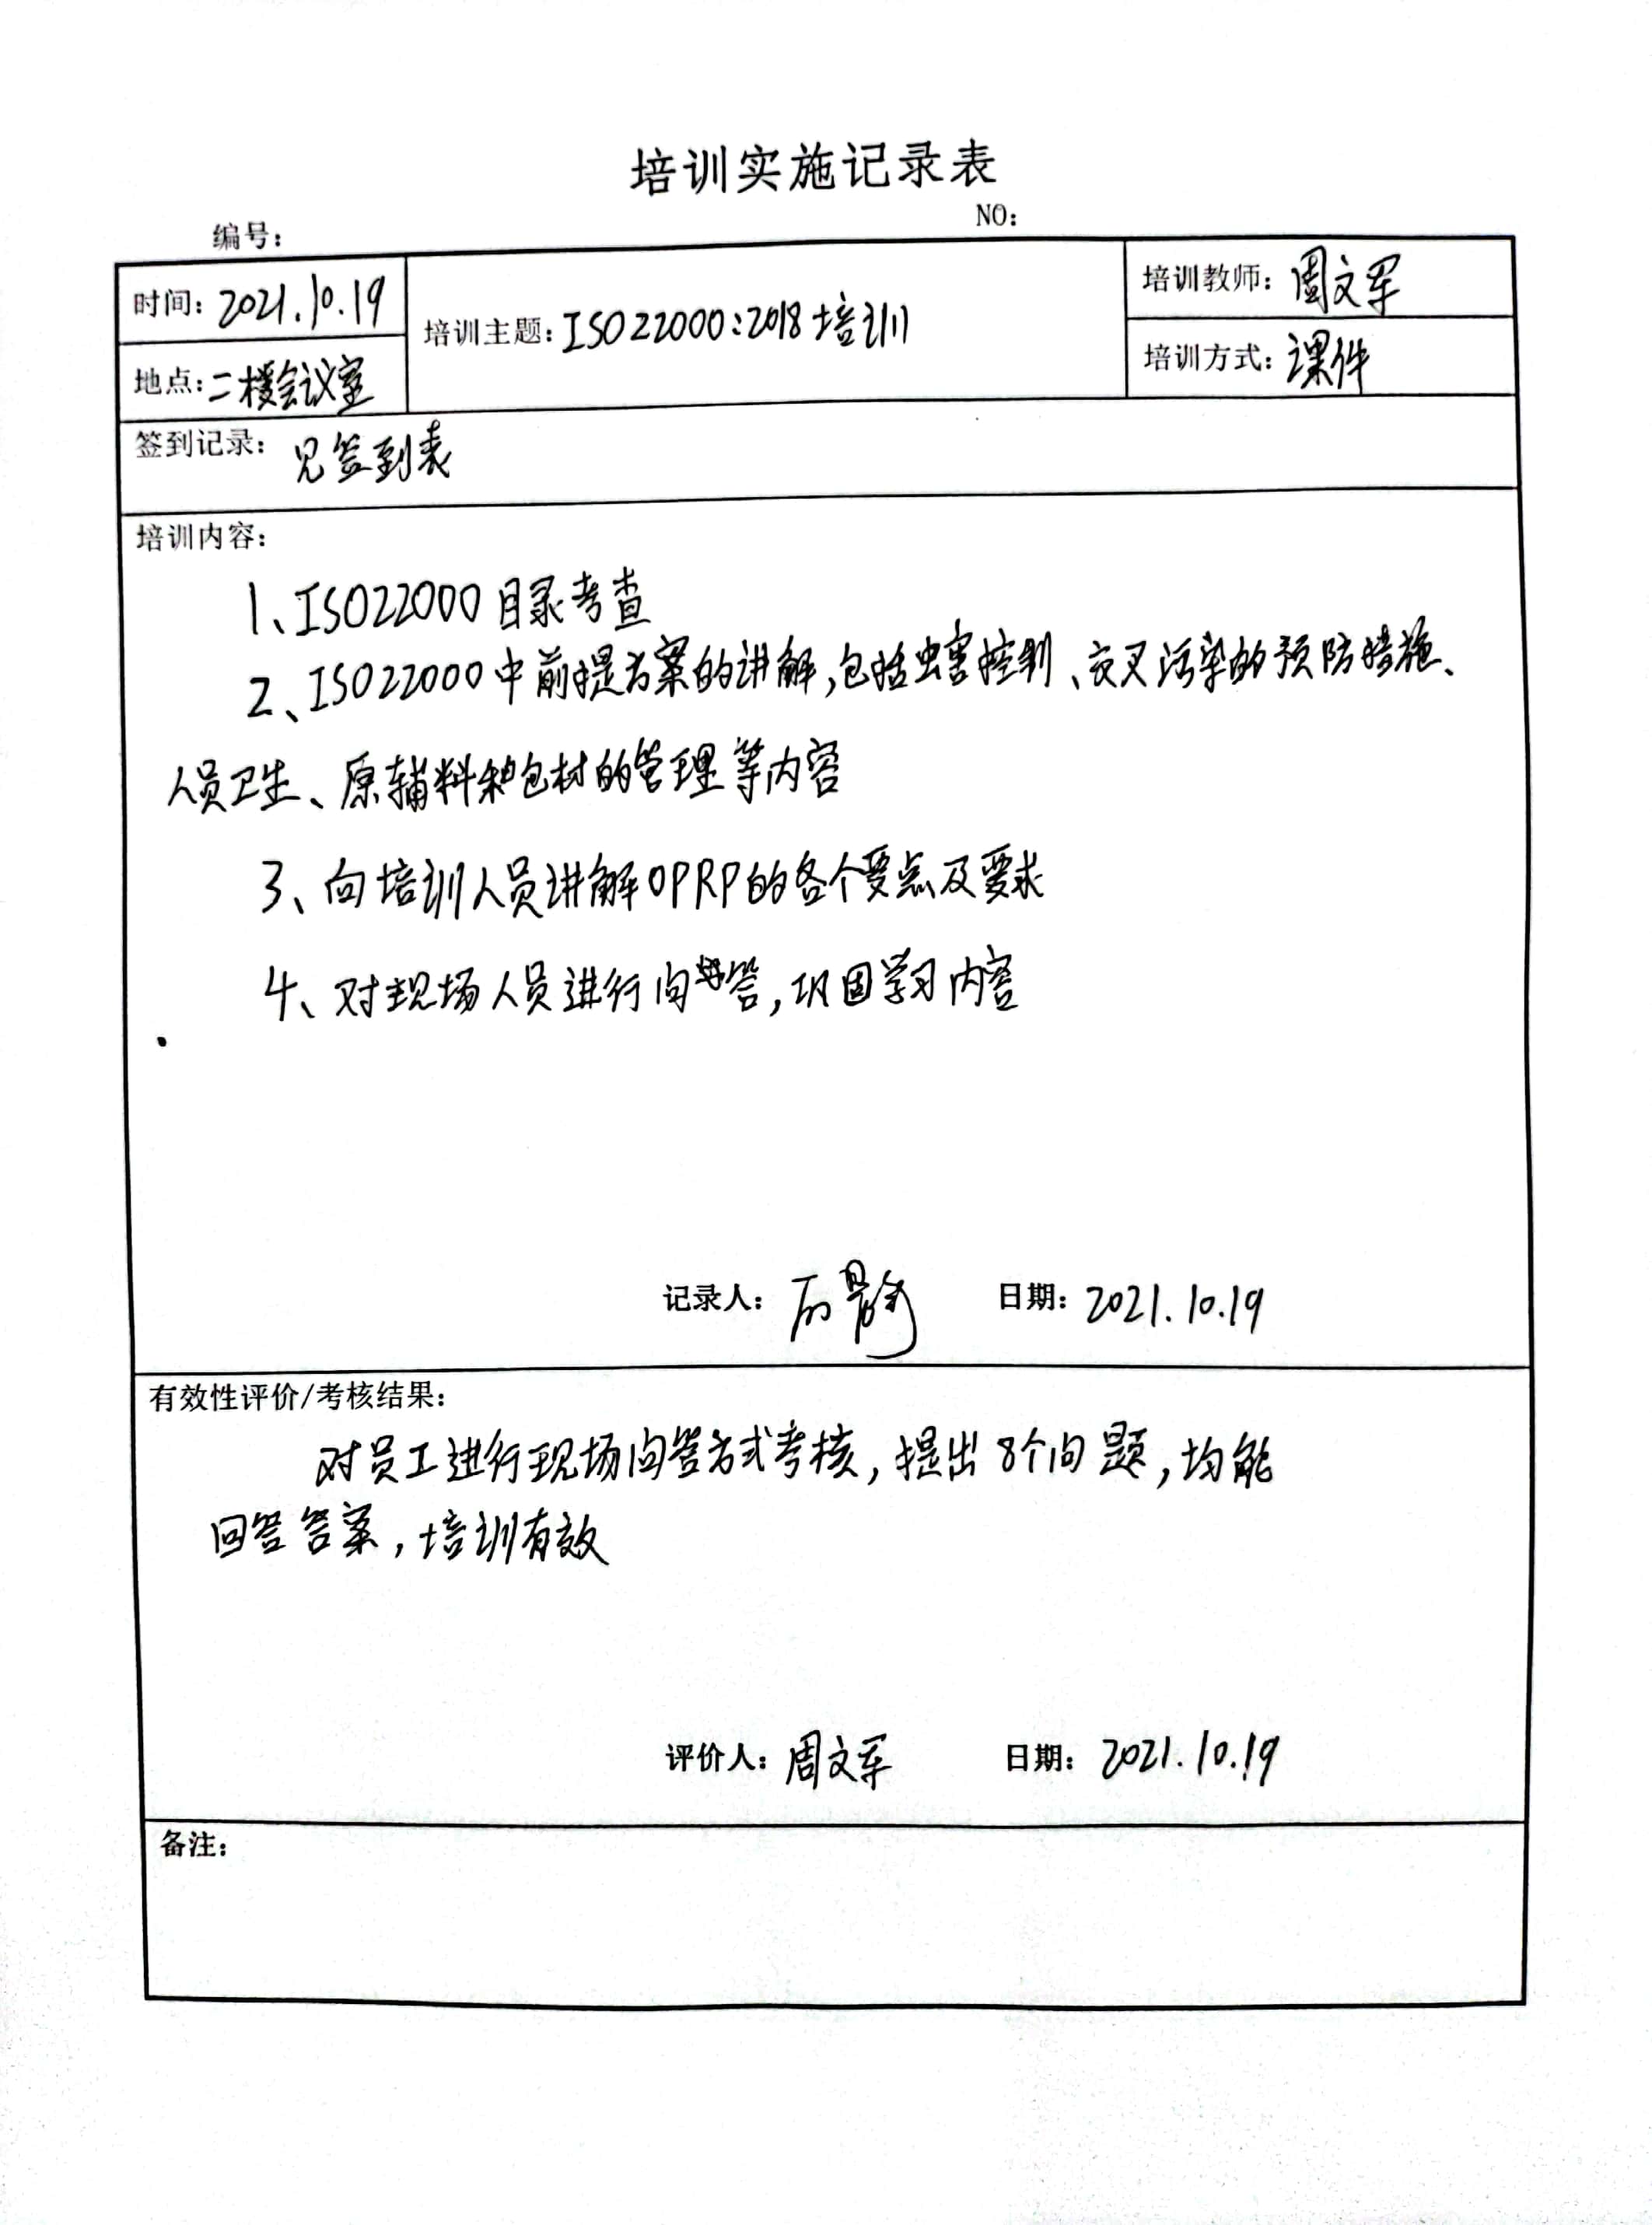 培训实施记录表
编号： NO：
时间：2021.10.19 培训主题：ISO22000:2018培训 培训教师：周文军
地点：二楼会议室 培训方式：课件
签到记录：见签到表
培训内容：
1、ISO22000目录考查
2、ISO22000中前提方案的讲解,包括虫害控制、交叉污染的预防措施、
人员卫生、原辅料和包材的管理等内容
3、向培训人员讲解OPRP的各个要点及要求
4、对现场人员进行问答,巩固学习内容
记录人： 日期：2021.10.19
有效性评价/考核结果：
对员工进行现场问答方式考核,提出8个问题,均能
回答答案,培训有效
评价人：周文军 日期：2021.10.19
备注：